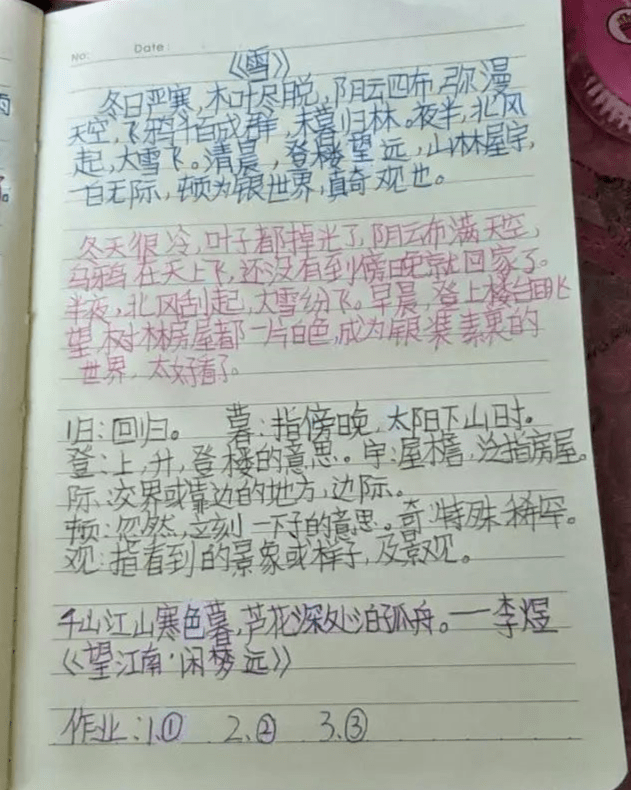 No:
Date:
《雪》
冬日严寒,木叶尽脱,阴云四布,弥漫
天空,飞鸦千百成群,未暮归林。夜半,北风
起,大雪飞。清晨,登楼望远,山林屋宇,
一白无际,顿为银世界,真奇观也。
冬天很冷,叶子都掉光了,阴云布满天空,
乌鸦在天上飞,还没有到傍晚就回家了。
半夜,北风刮起,大雪纷飞。早晨,登上楼台眺
望,树林房屋都一片白色,成为银装素裹的
世界,太好看了。
归:回归。 暮:指傍晚,太阳下山时。
登:上,升,登楼的意思。宇:屋檐,泛指房屋。
际:交界或靠边的地方,边际。
顿:忽然,立刻一下子的意思。奇:特殊,稀罕。
观:指看到的景象或样子,及景观。
千山江山寒色暮,芦花深处泊孤舟。——李煜
《望江南·闲梦远》
作业:1.① 2.② 3.③